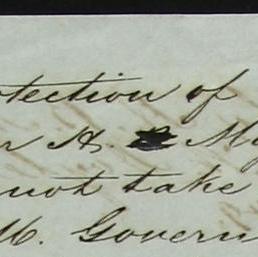 otection of
r H. My
not take
M. Govern